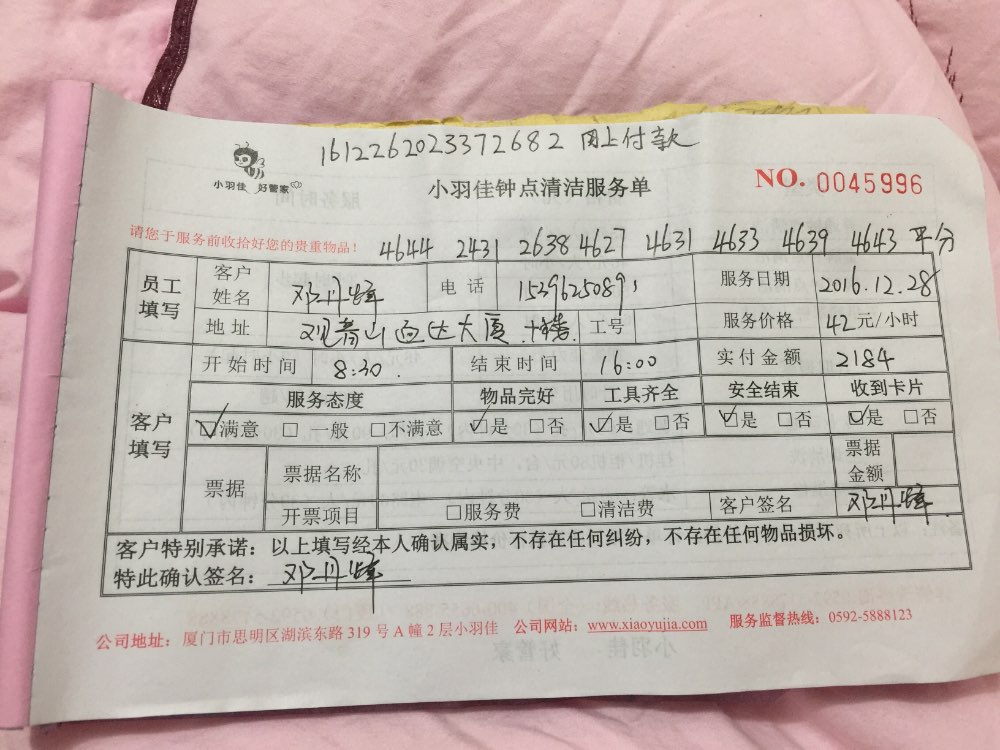 1612262023372682 网上付款
小羽佳 好管家
小羽佳钟点清洁服务单
NO. 0045996
请您于服务前收拾好您的贵重物品!
4644 2431 2638 4627 4631 4633 4639 4643 平分
员工填写 客户姓名 邓丹 电话 服务日期 2016.12.28
地址 观音山 大厦 工号 服务价格 42元/小时
客户填写 开始时间 8:30. 结束时间 16:00 实付金额 2184
服务态度 物品完好 工具齐全 安全结束 收到卡片
☑满意 □一般 □不满意 ☑是 □否 ☑是 □否 ☑是 □否 ☑是 □否
票据 票据名称 票据金额
开票项目 □服务费 □清洁费 客户签名 邓丹
客户特别承诺:以上填写经本人确认属实,不存在任何纠纷,不存在任何物品损坏。
特此确认签名:邓丹
公司地址:厦门市思明区湖滨东路 319 号 A 幢 2 层小羽佳 公司网站:www.xiaoyujia.com 服务监督热线:0592-5888123